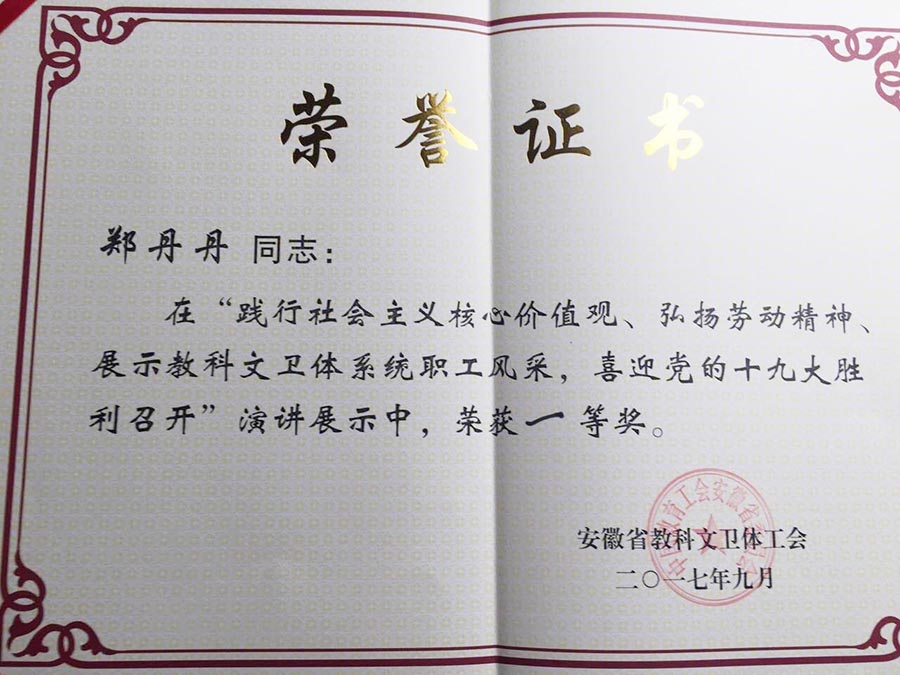 荣誉证书
郑丹丹 同志：
在“践行社会主义核心价值观、弘扬劳动精神、
展示教科文卫体系统职工风采，喜迎党的十九大胜
利召开”演讲展示中，荣获一等奖。
安徽省教科文卫体工会
二〇一七年九月